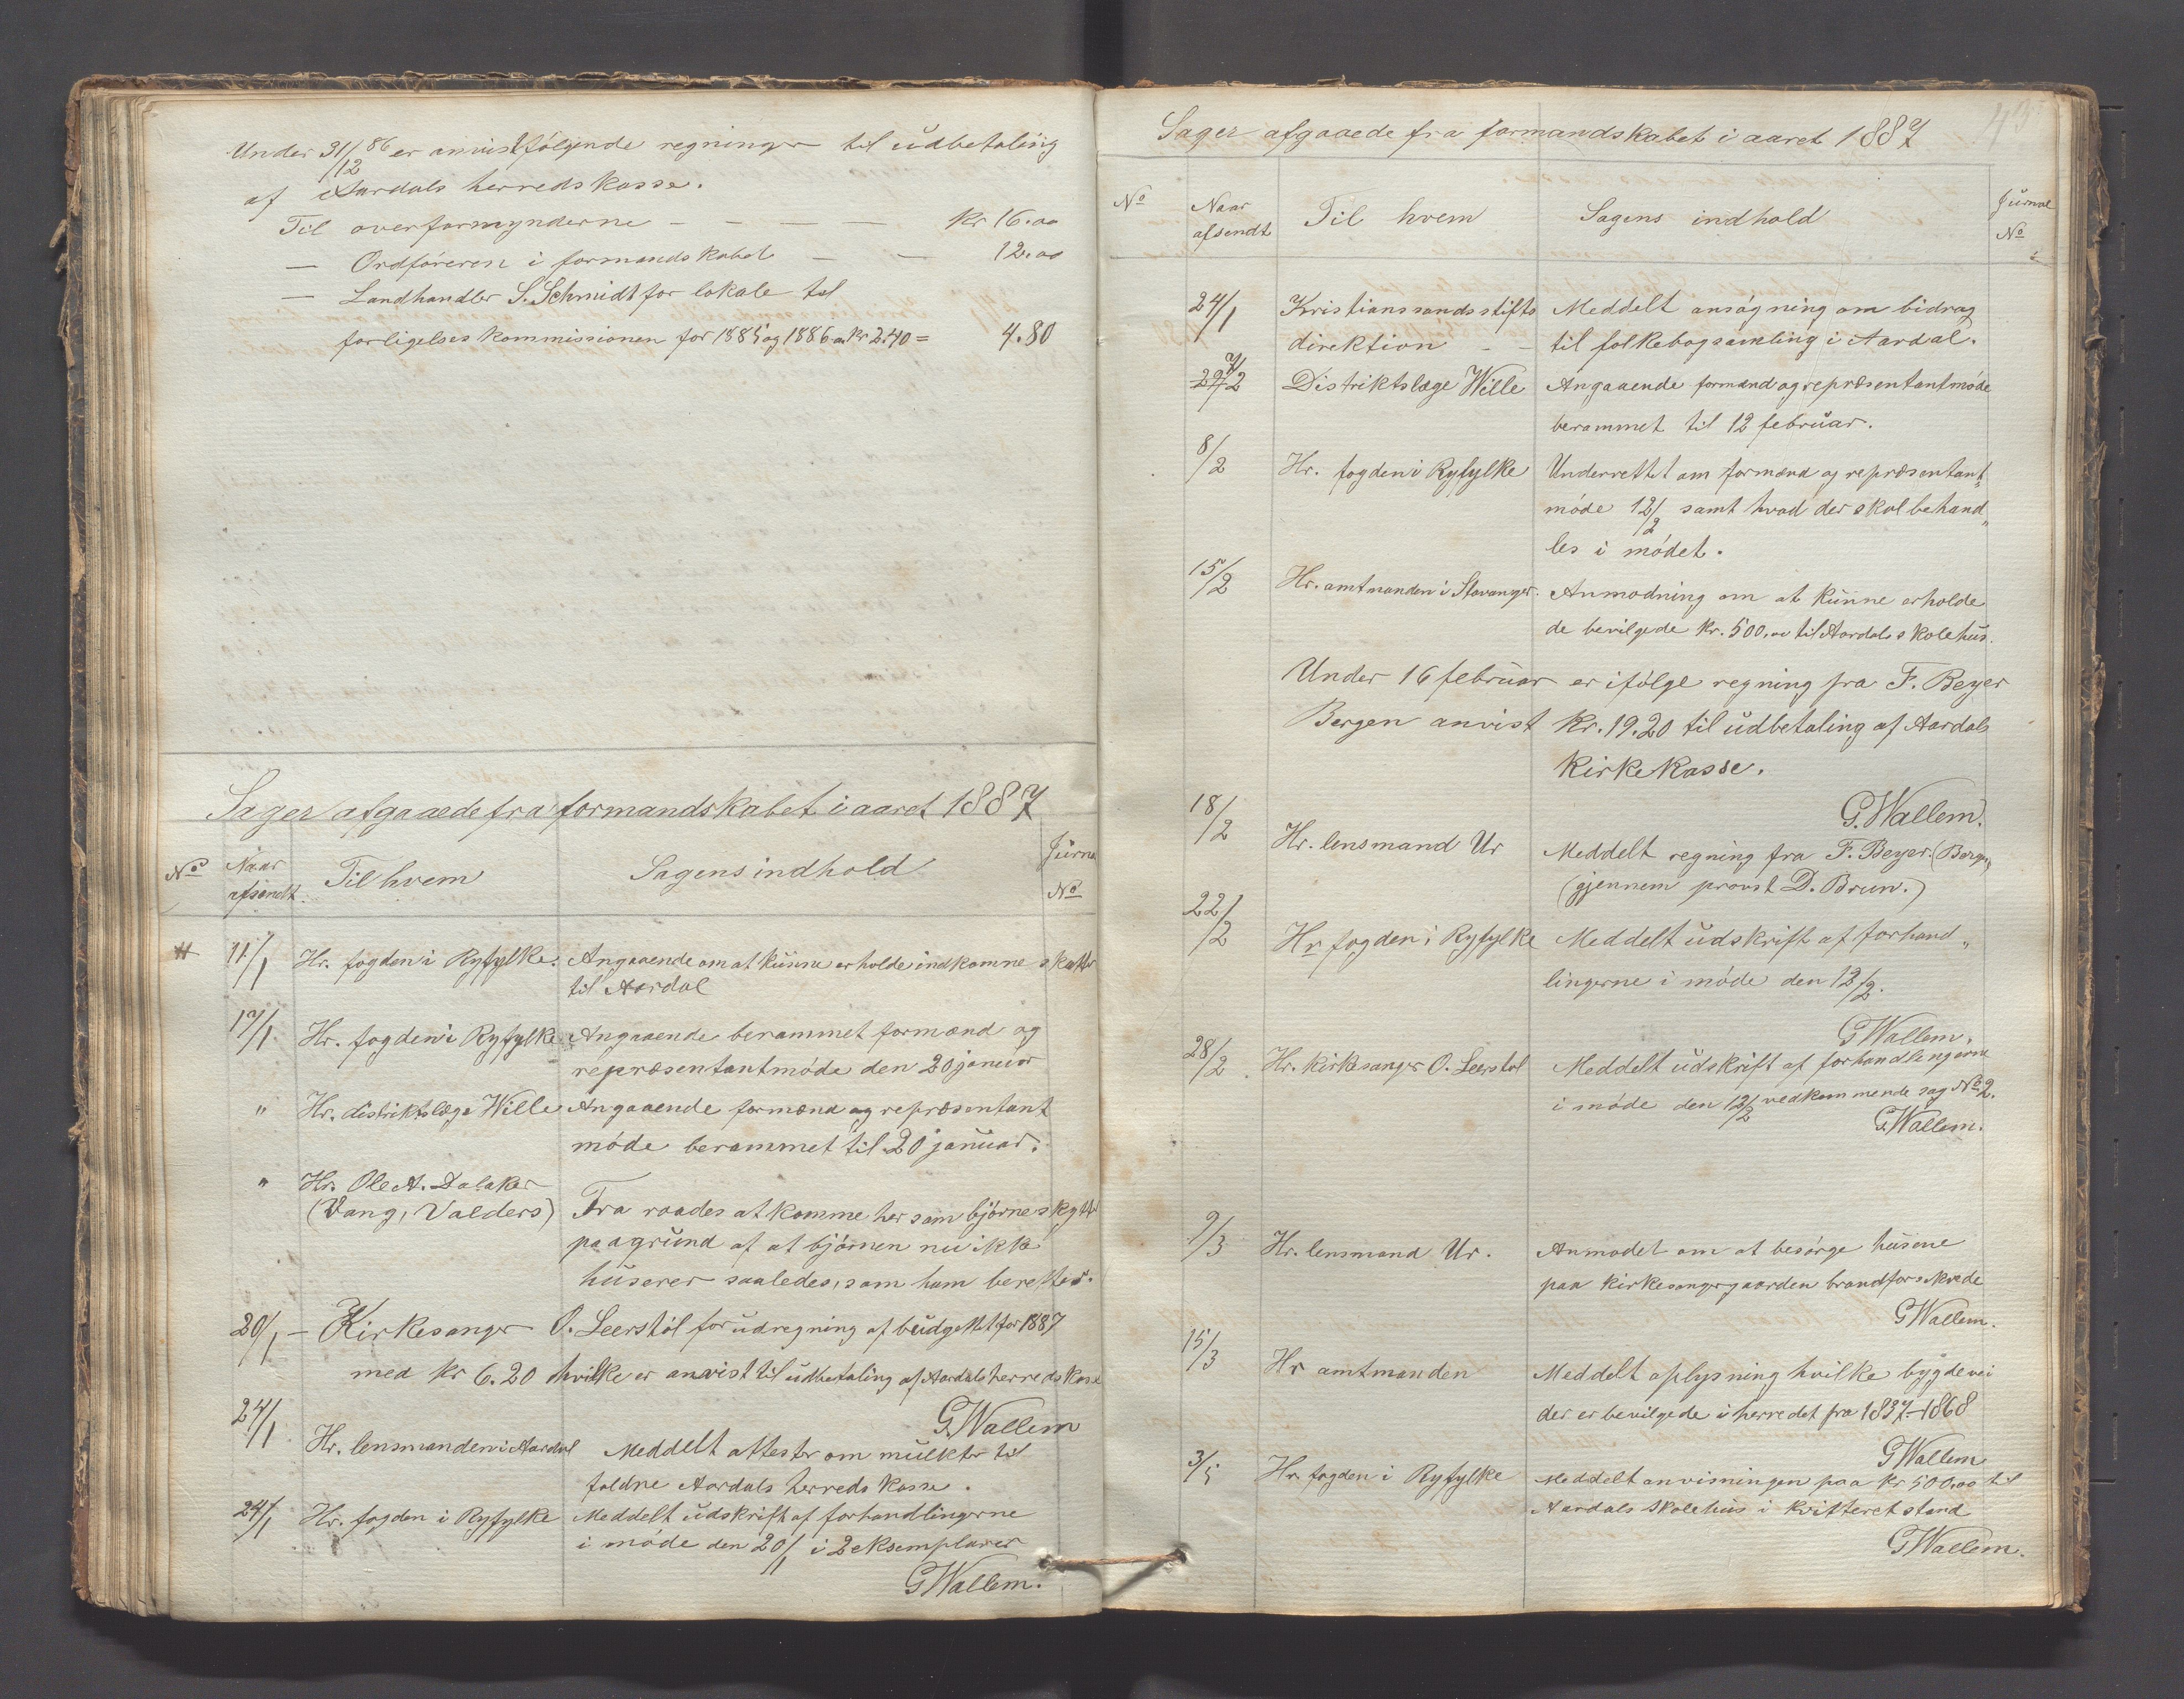 Under 31/12 86 er anvist følgende regninger til udbetaling
af Aardals herredskasse.
Til overformynderne — — — — kr 16.00
— Ordføreren i formandskabet — — 12.00
— Landhandler S. Schmidt for lokale til
forligelseskommissionen for 1885 og 1886 a kr 2.40 = 4.80
Sager afgaaede fra formandskabet i aaret 1887
No Naar afsendt. Til hvem Sagens indhold Jurna No
11/1 Hr. fogden i Ryfylke. Angaaende om at kunne erholde indkomne skatter
til Aardal
17/1 Hr. fogden i Ryfylke Angaaende berammet formænd og
repræsentantmøde den 20 januar
" Hr. distriktslæge Wille Angaaende formænd og repræsentant
møde berammet til 20 januar.
" Hr. Ole A. Dalaker
(Vang, Valders) Fra raades at komme her som bjørneskytter
paa grund af at bjørnen nu ikke
huserer saaledes, som ham berettes.
20/1 — Kirkesanger O. Leerstøl for udregning af budgettet for 1887
med kr 6.20 hvilke er anvist til udbetaling af Aardals herredskasse
G. Wallem
24/1 Hr. lensmanden i Aardal Meddelt attester om mulkter til
faldne Aardals herreds kasse.
24/1 Hr. fogden i Ryfylke Meddelt udskrift af forhandlingerne
i møde den 20/1 i 2 eksemplarer
G Wallem.
Sager afgaaede fra formandskabet i aaret 1887
No Naar afsendt Til hvem Sagens indhold Jurnal No
24/1 Kristianssands stifts Meddelt ansøgning om bidrag
direktion — — til folkebogsamling i Aardal.
7/2 Distriktslæge Wille Angaaende formænd og repræsentantmøde
berammet til 12 februar.
8/2 Hr. fogden i Ryfylke Underrettet om formænd og repræsentant"
møde 12/2 samt hvad der skal behand"
les i mødet.
15/2 Hr. amtmanden i Stavanger. Anmodning om at kunne erholde
de bevilgede kr. 500.00 til Aardals skolehus.
Under 16 februar er ifølge regning fra F. Beyer
Bergen anvist kr. 19.20 til udbetaling af Aardals
kirkekasse.
G. Wallem.
18/2 Hr. lensmand Ur Meddelt regning fra F. Beyer. (Bergen)
(gjennem provst D. Brun.)
22/2 Hr fogden i Ryfylke Meddelt udskrift af forhand"
lingerne i møde den 12/2.
G Wallem.
28/2 Hr. kirkesanger O. Leerstøl Meddelt udskrift af forhandlingerne
i møde den 12/2 vedkommende sag No 2.
G Wallem.
9/3 Hr. lensmand Ur. Anmodet om at besørge husene
paa kirkesangergaarden brandforsikrede
G Wallem.
15/3 Hr amtmanden Meddelt oplysning hvilke bygdevei
der er bevilgede i herredet fra 1837–1868
G Wallem
3/5 Hr. fogden i Ryfylke Meddelt anvisningen paa kr 500.00 til
Aardals skolehus i kvitteret stand
G Wallem.